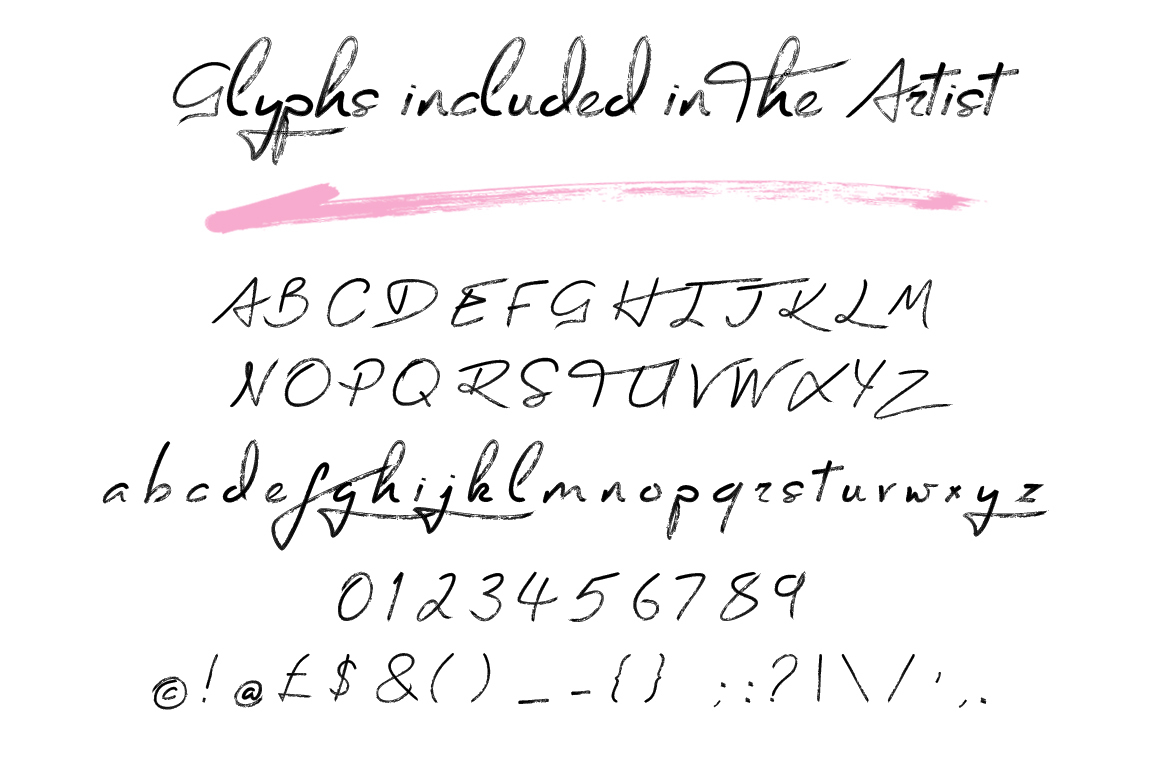 Glyphs included in The Artist
A B C D E F G H I J K L M
N O P Q R S T U V W X Y Z
a b c d e f g h i j k l m n o p q r s t u r w x y z
0 1 2 3 4 5 6 7 8 9
© ! @ £ $ & ( ) _ - { } ; : ? | \ / ' , .